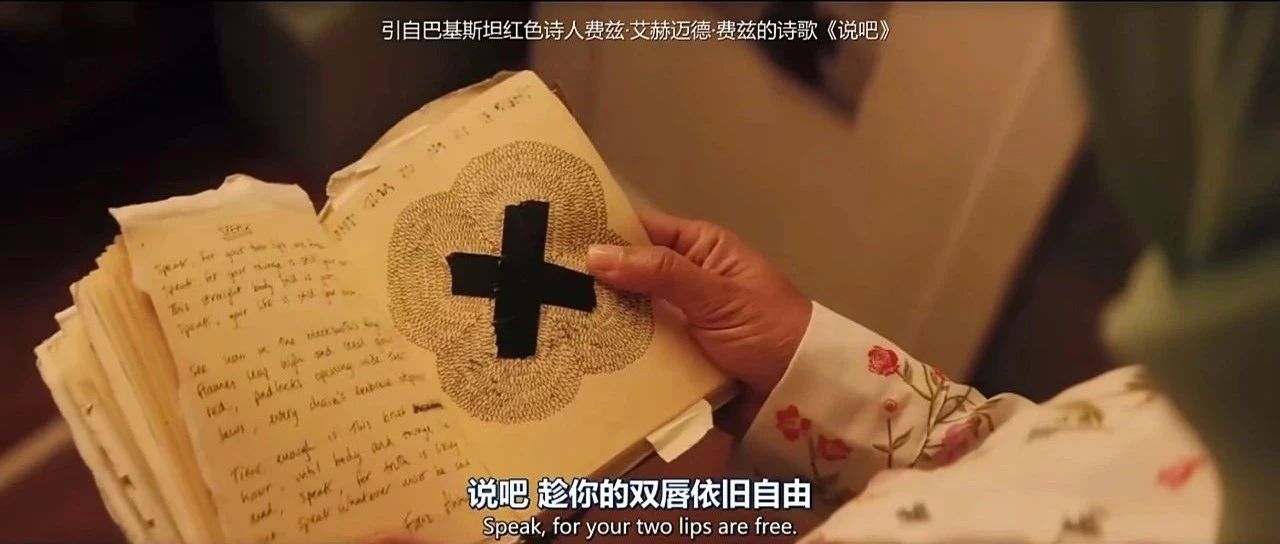 引自巴基斯坦红色诗人费兹·艾赫迈德·费兹的诗歌《说吧》
SPEAK
Speak, for your two lips are free
Speak, for your tongue is still your
This straight body still is your
Speak, your life is still your own
See how in the blacksmith's forge
Flames leap high and steel glows
red, padlocks opening wide their
jaws, every chain's embrace
Time enough is this brief
hour, until body and tongue
dead, speak, for truth is living
speak whatever must be said
Faiz
说吧 趁你的双唇依旧自由
Speak, for your two lips are free.